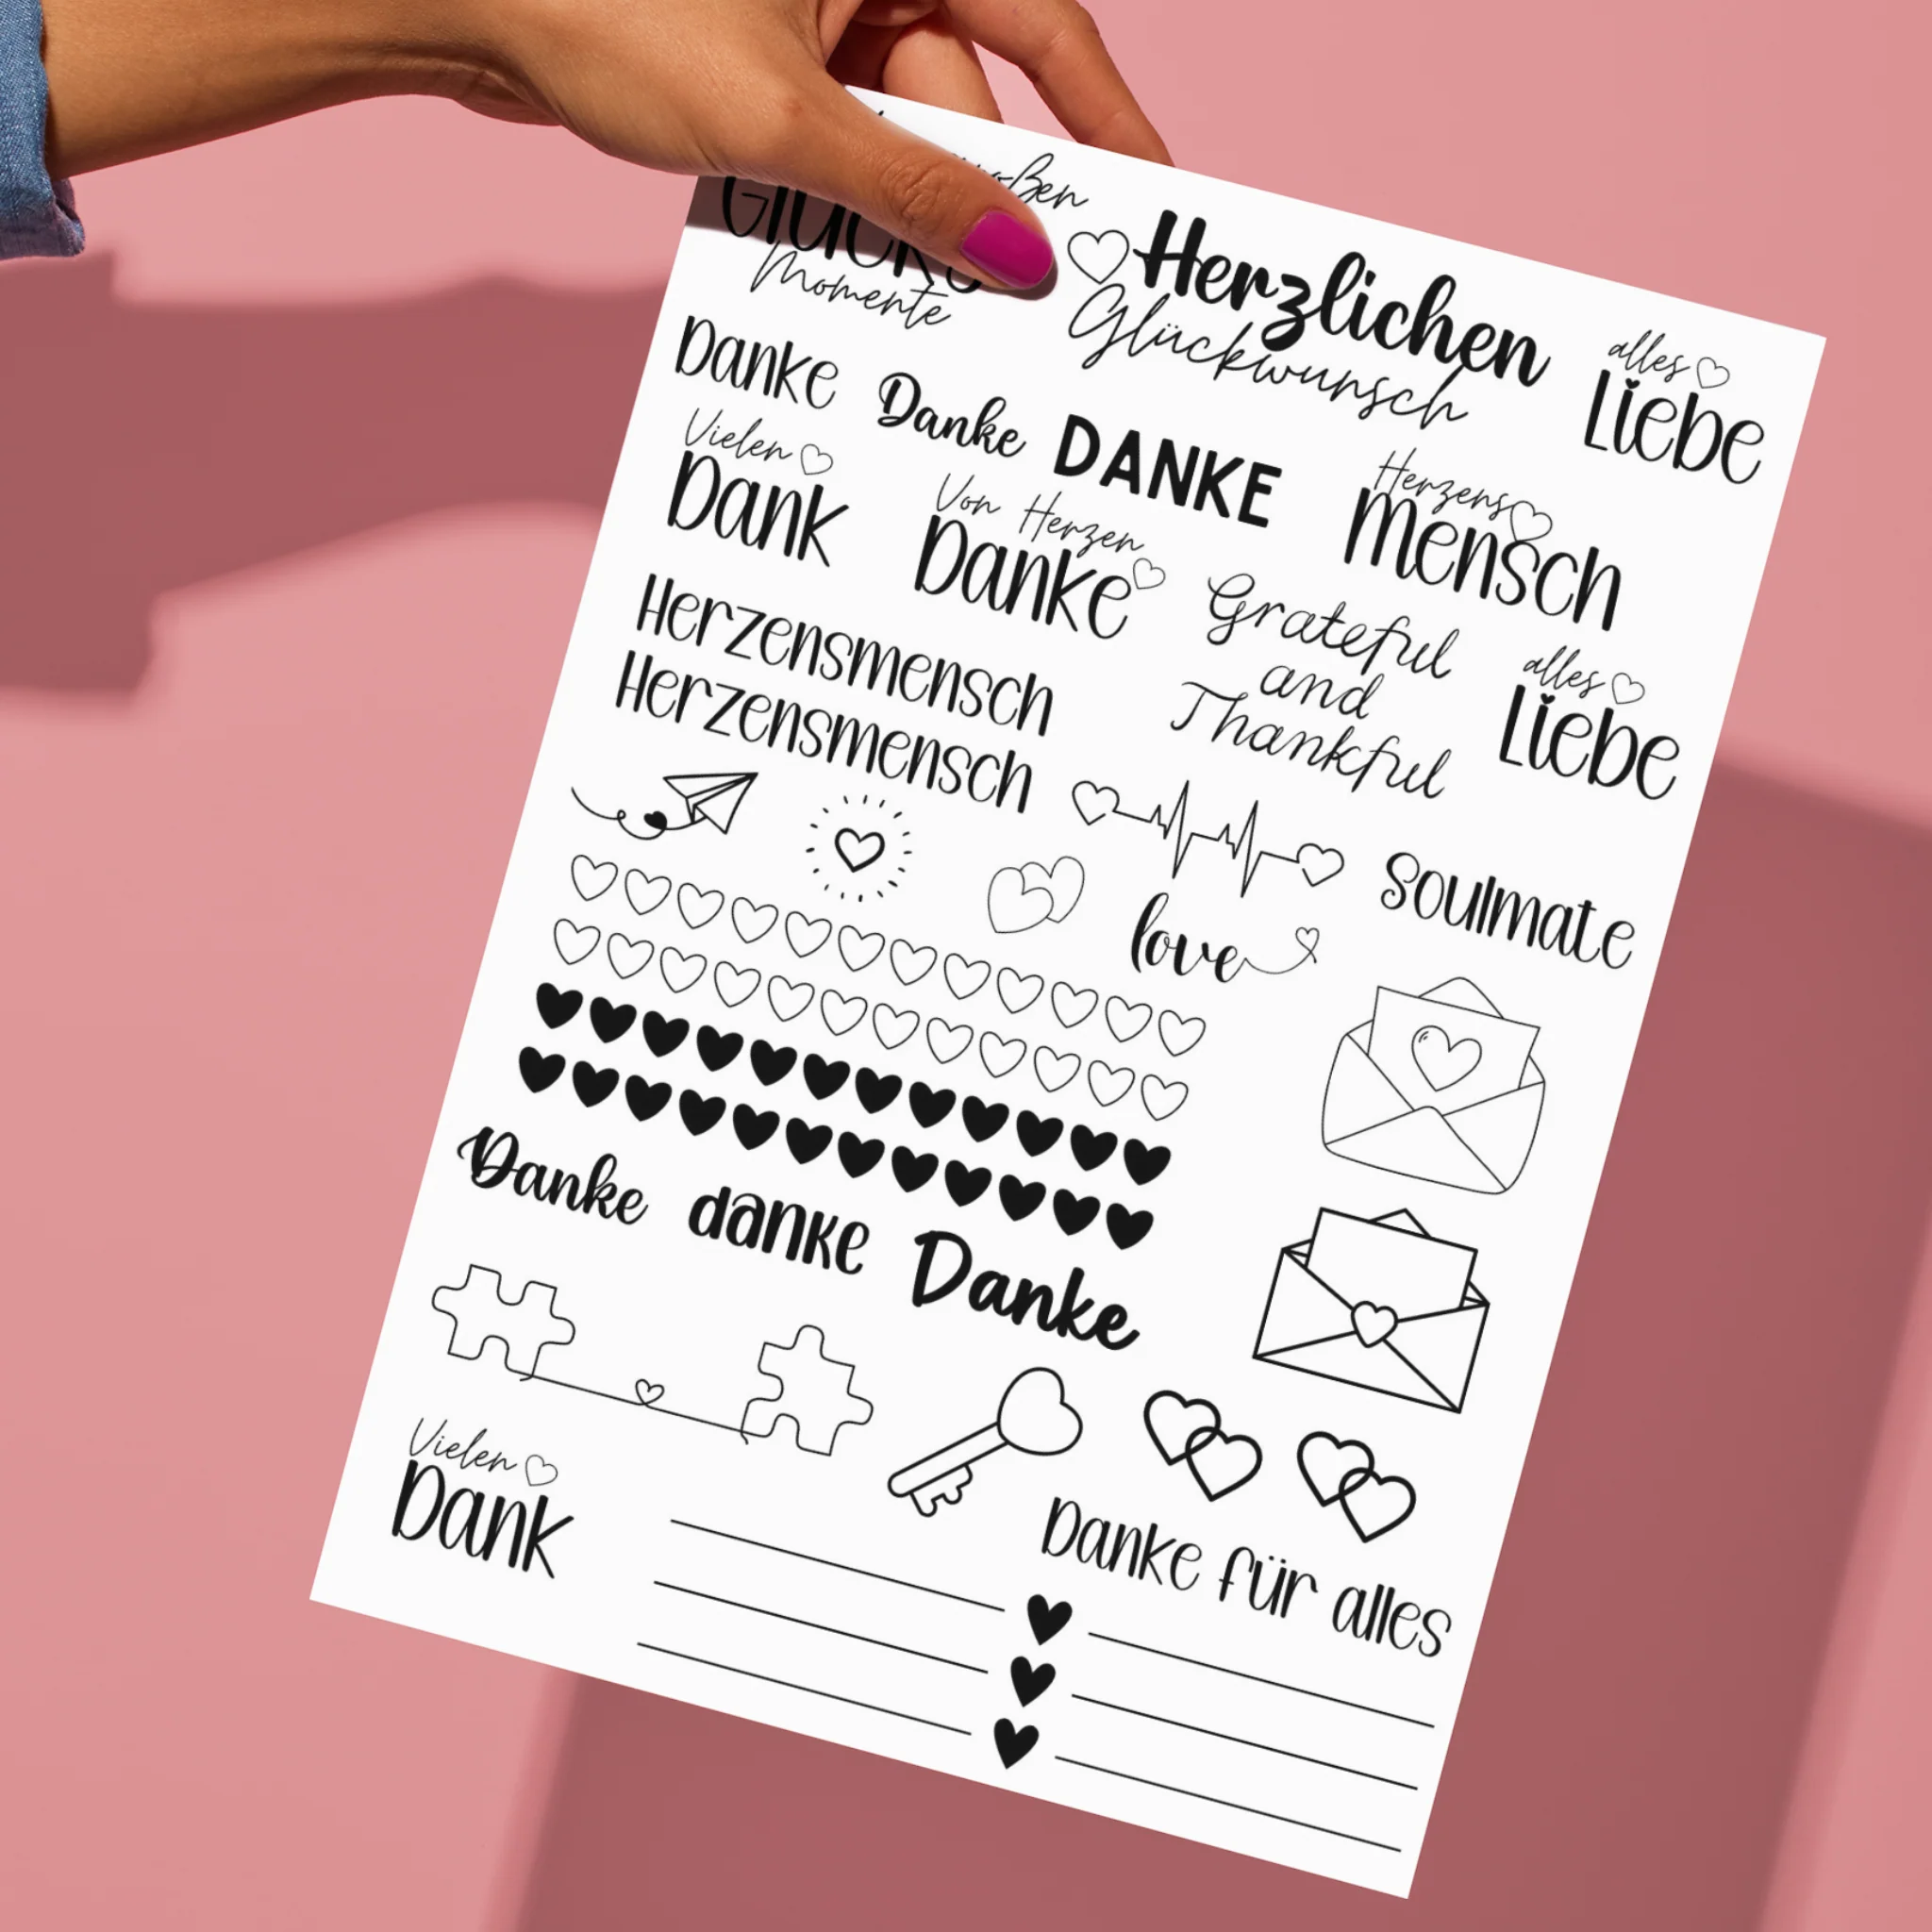 Momente
Herzlichen
Glückwunsch
alles
Liebe
Danke
Danke
DANKE
Vielen
Dank
Von Herzen
Danke
Herzens
Mensch
Grateful
and
Thankful
alles
Liebe
Herzensmensch
Herzensmensch
love
Soulmate
Danke
danke
Danke
Vielen
Dank
Danke für alles